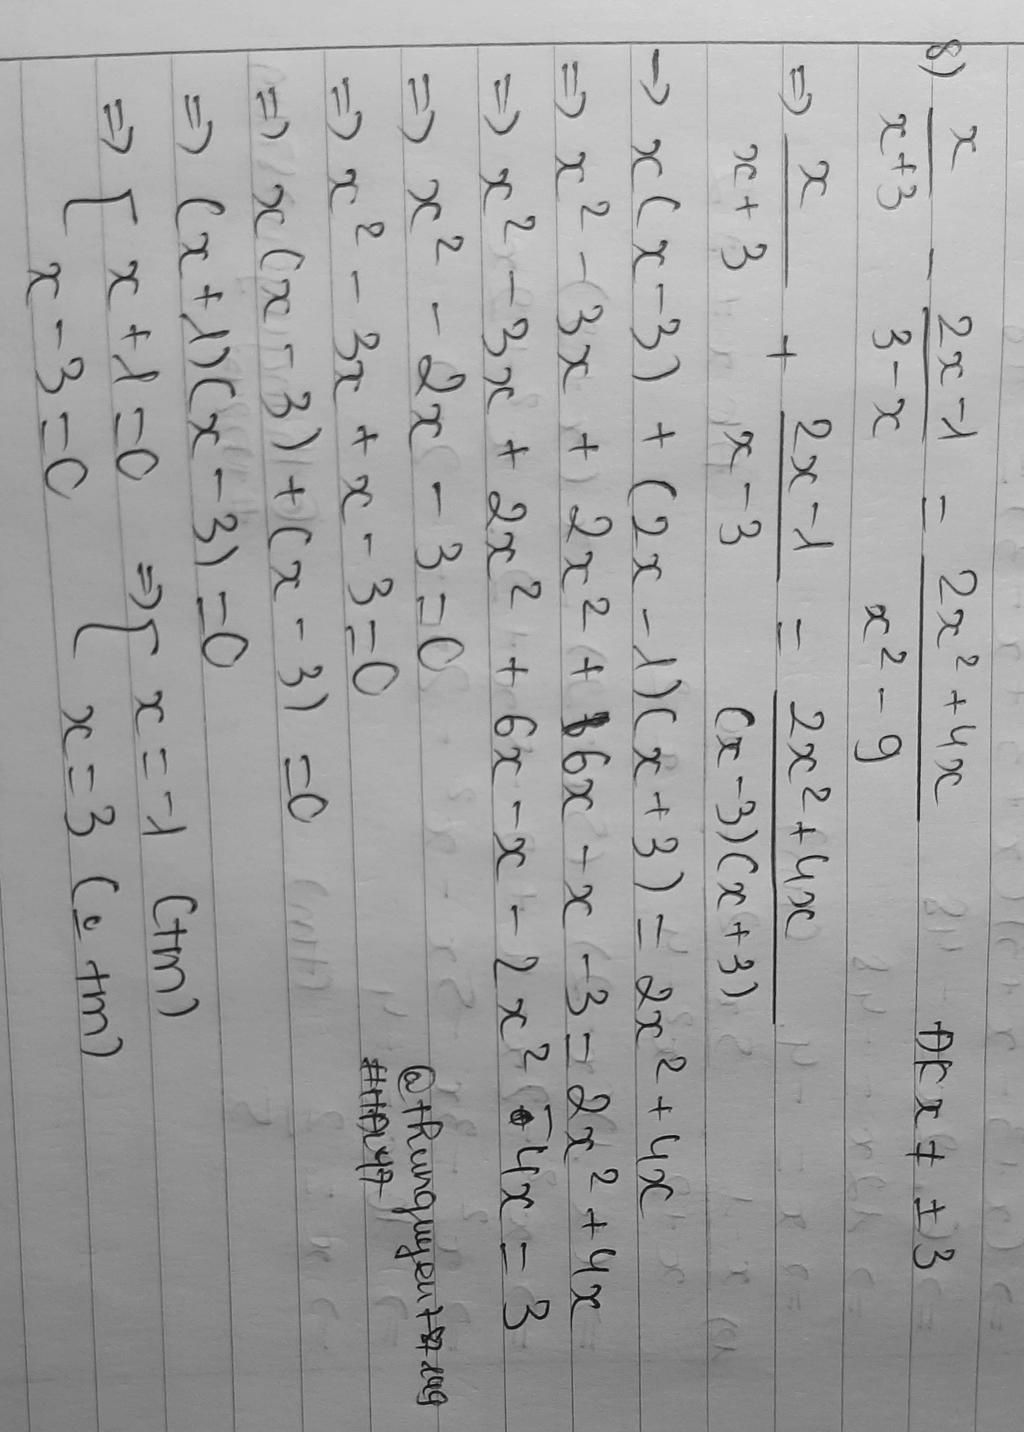 8) x/(x+3) - (2x-1)/(3-x) = (2x²+4x)/(x²-9) ĐK x ≠ ±3
=> x/(x+3) + (2x-1)/(x-3) = (2x²+4x)/((x-3)(x+3))
→ x(x-3) + (2x-1)(x+3) = 2x²+4x
=> x²-3x+2x²+6x-x-3=2x²+4x
=> x²-3x+2x²+6x-x-2x²-4x=3
=> x²-2x-3=0
=> x²-3x+x-3=0
=> x(x-3)+(x-3)=0
=> (x+1)(x-3)=0
=> [ x+1=0 => [ x=-1 (tm)
x-3=0 x=3 (o tm)